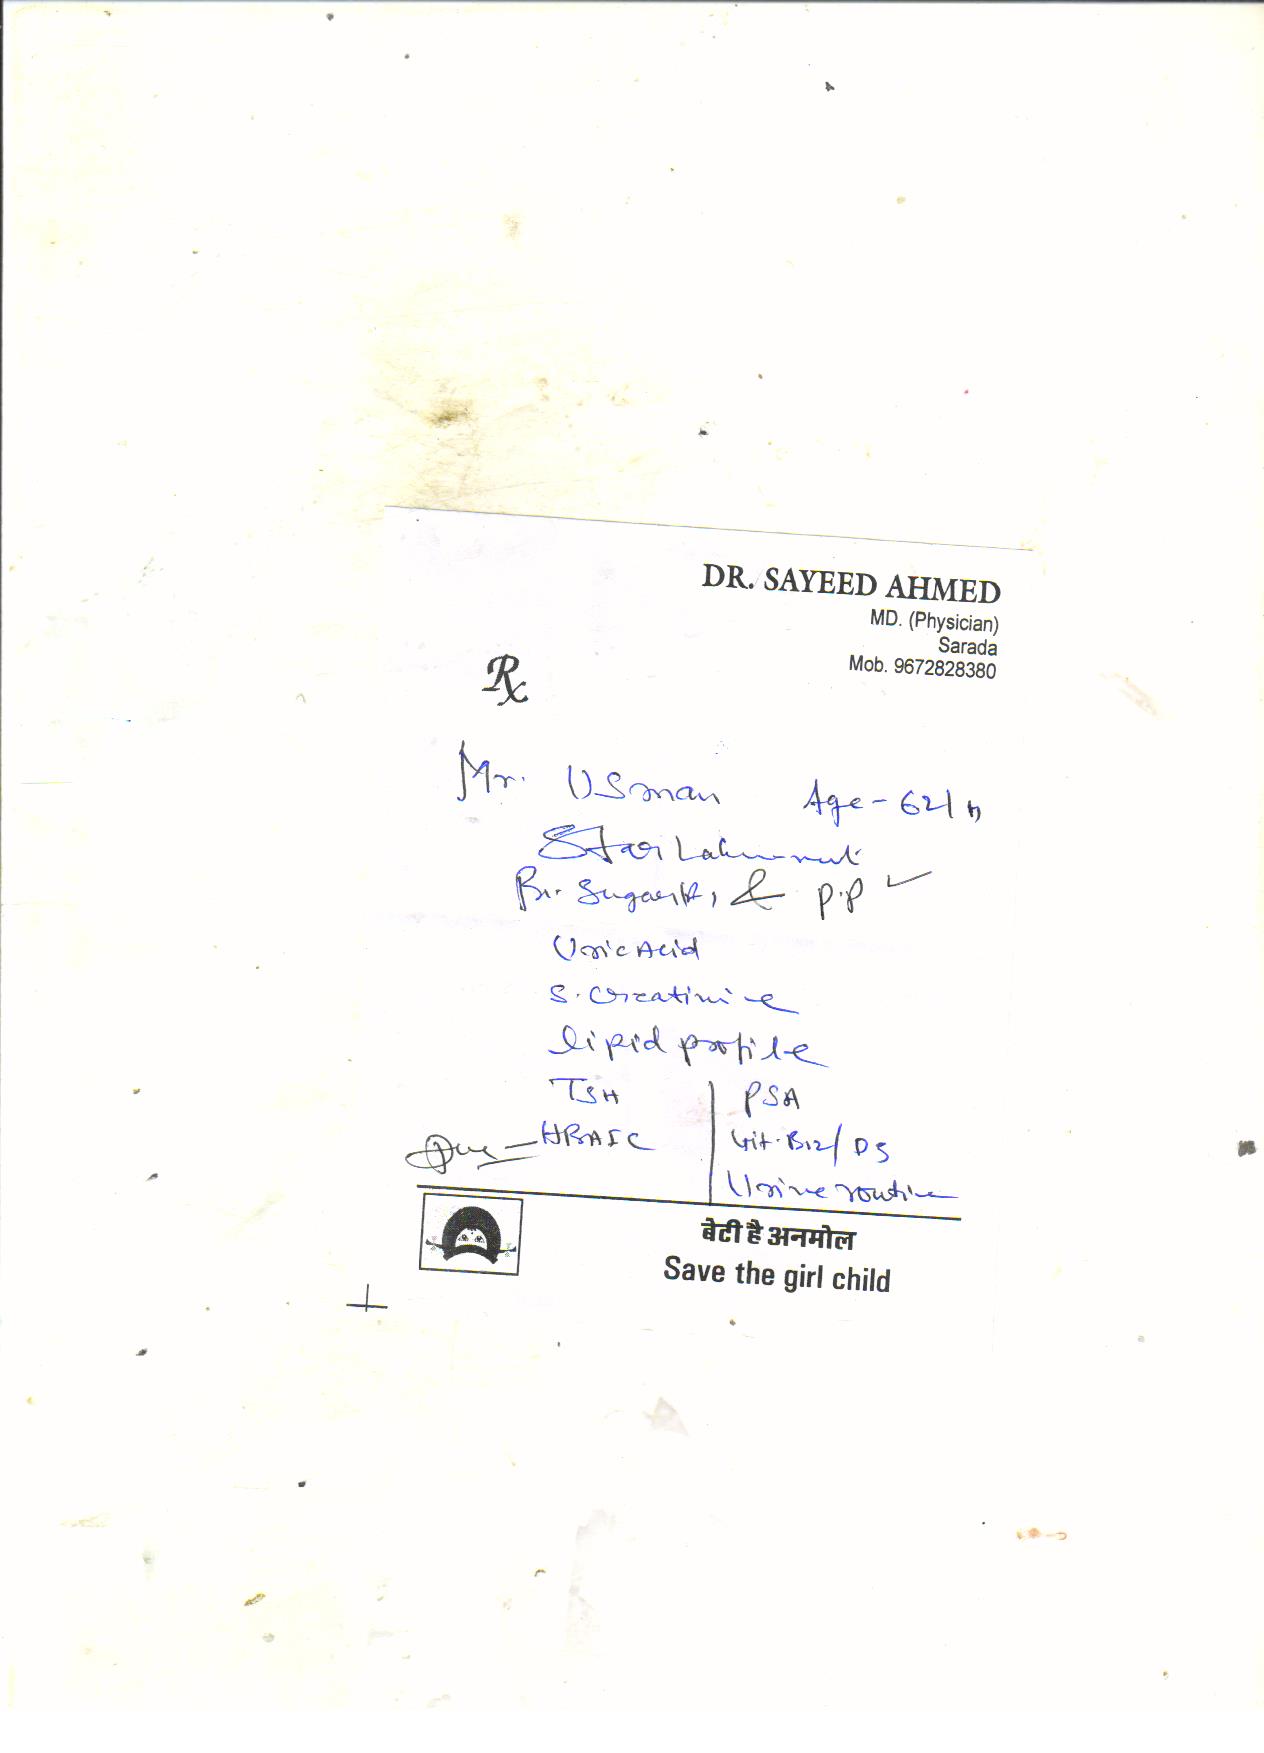 DR. SAYEED AHMED
MD. (Physician)
Sarada
Mob. 9672828380
Rx
Mr. Usman Age - 62/
Bl. Sugar & P.P
Uric Acid
S. Creatinine
lipid profile
TSH
HBAIC
PSA
Vit. B12 / D3
Urine routine
बेटी है अनमोल
Save the girl child